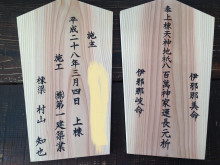 伊邪那美命
奉上棟天神地祇八百萬神家運長元祈
伊邪那岐命
施主
平成二十八年三月四日 上棟
施工 ㈱第一建築業
棟梁 村山 知也